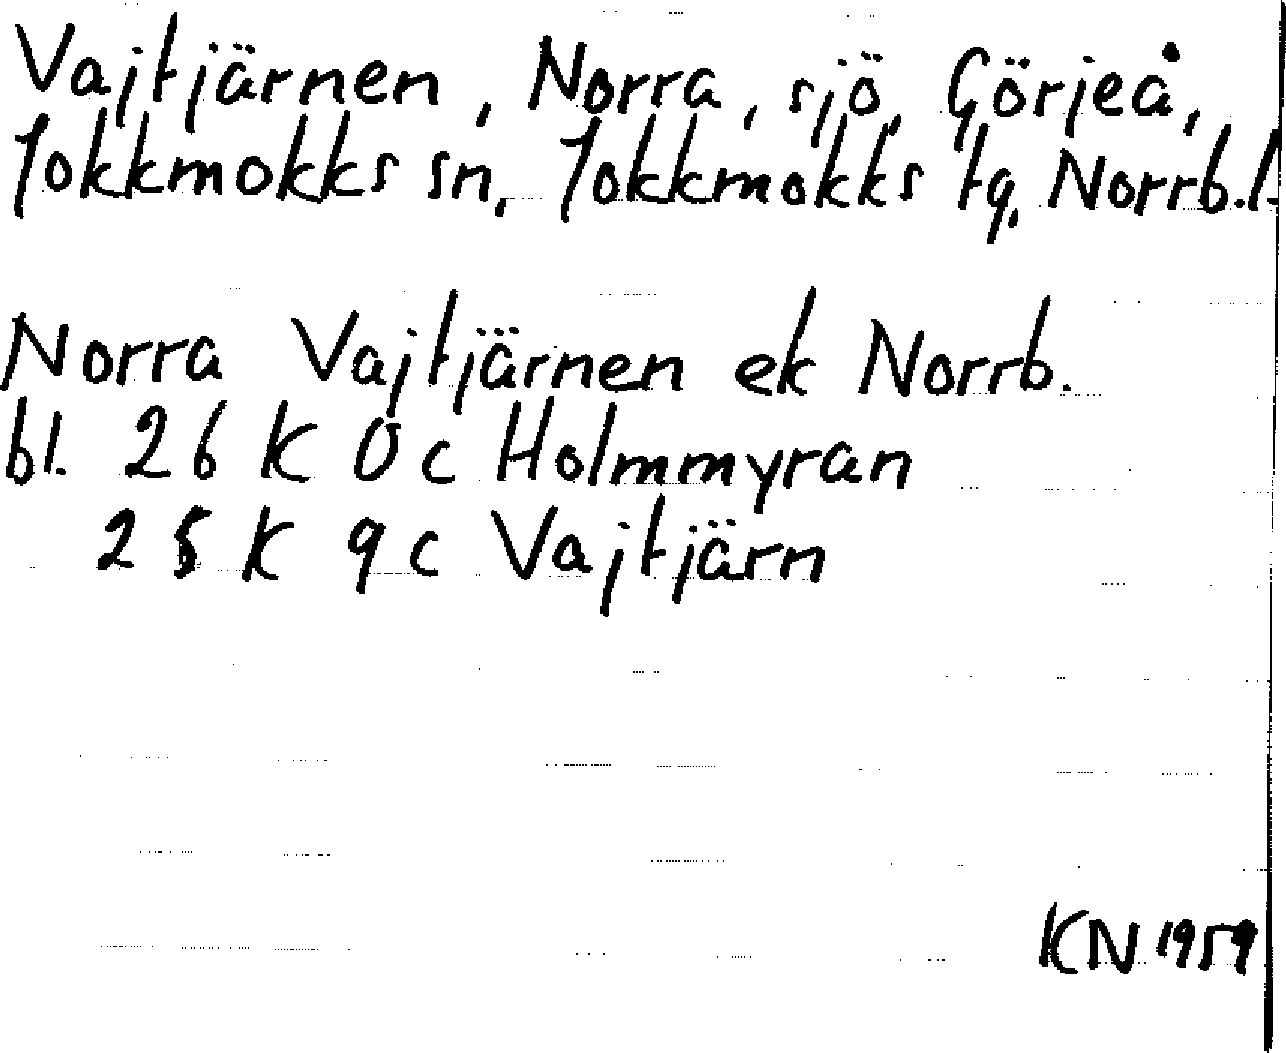 Vajtjärnen, Norra, sjö, Görjeå,
Jokkmokks sn, Jokkmokks tg, Norrb.l.
Norra Vajtjärnen ek Norrb.
bl. 26 K 0c Holmmyran
25 K 9c Vajtjärn
KN 1959